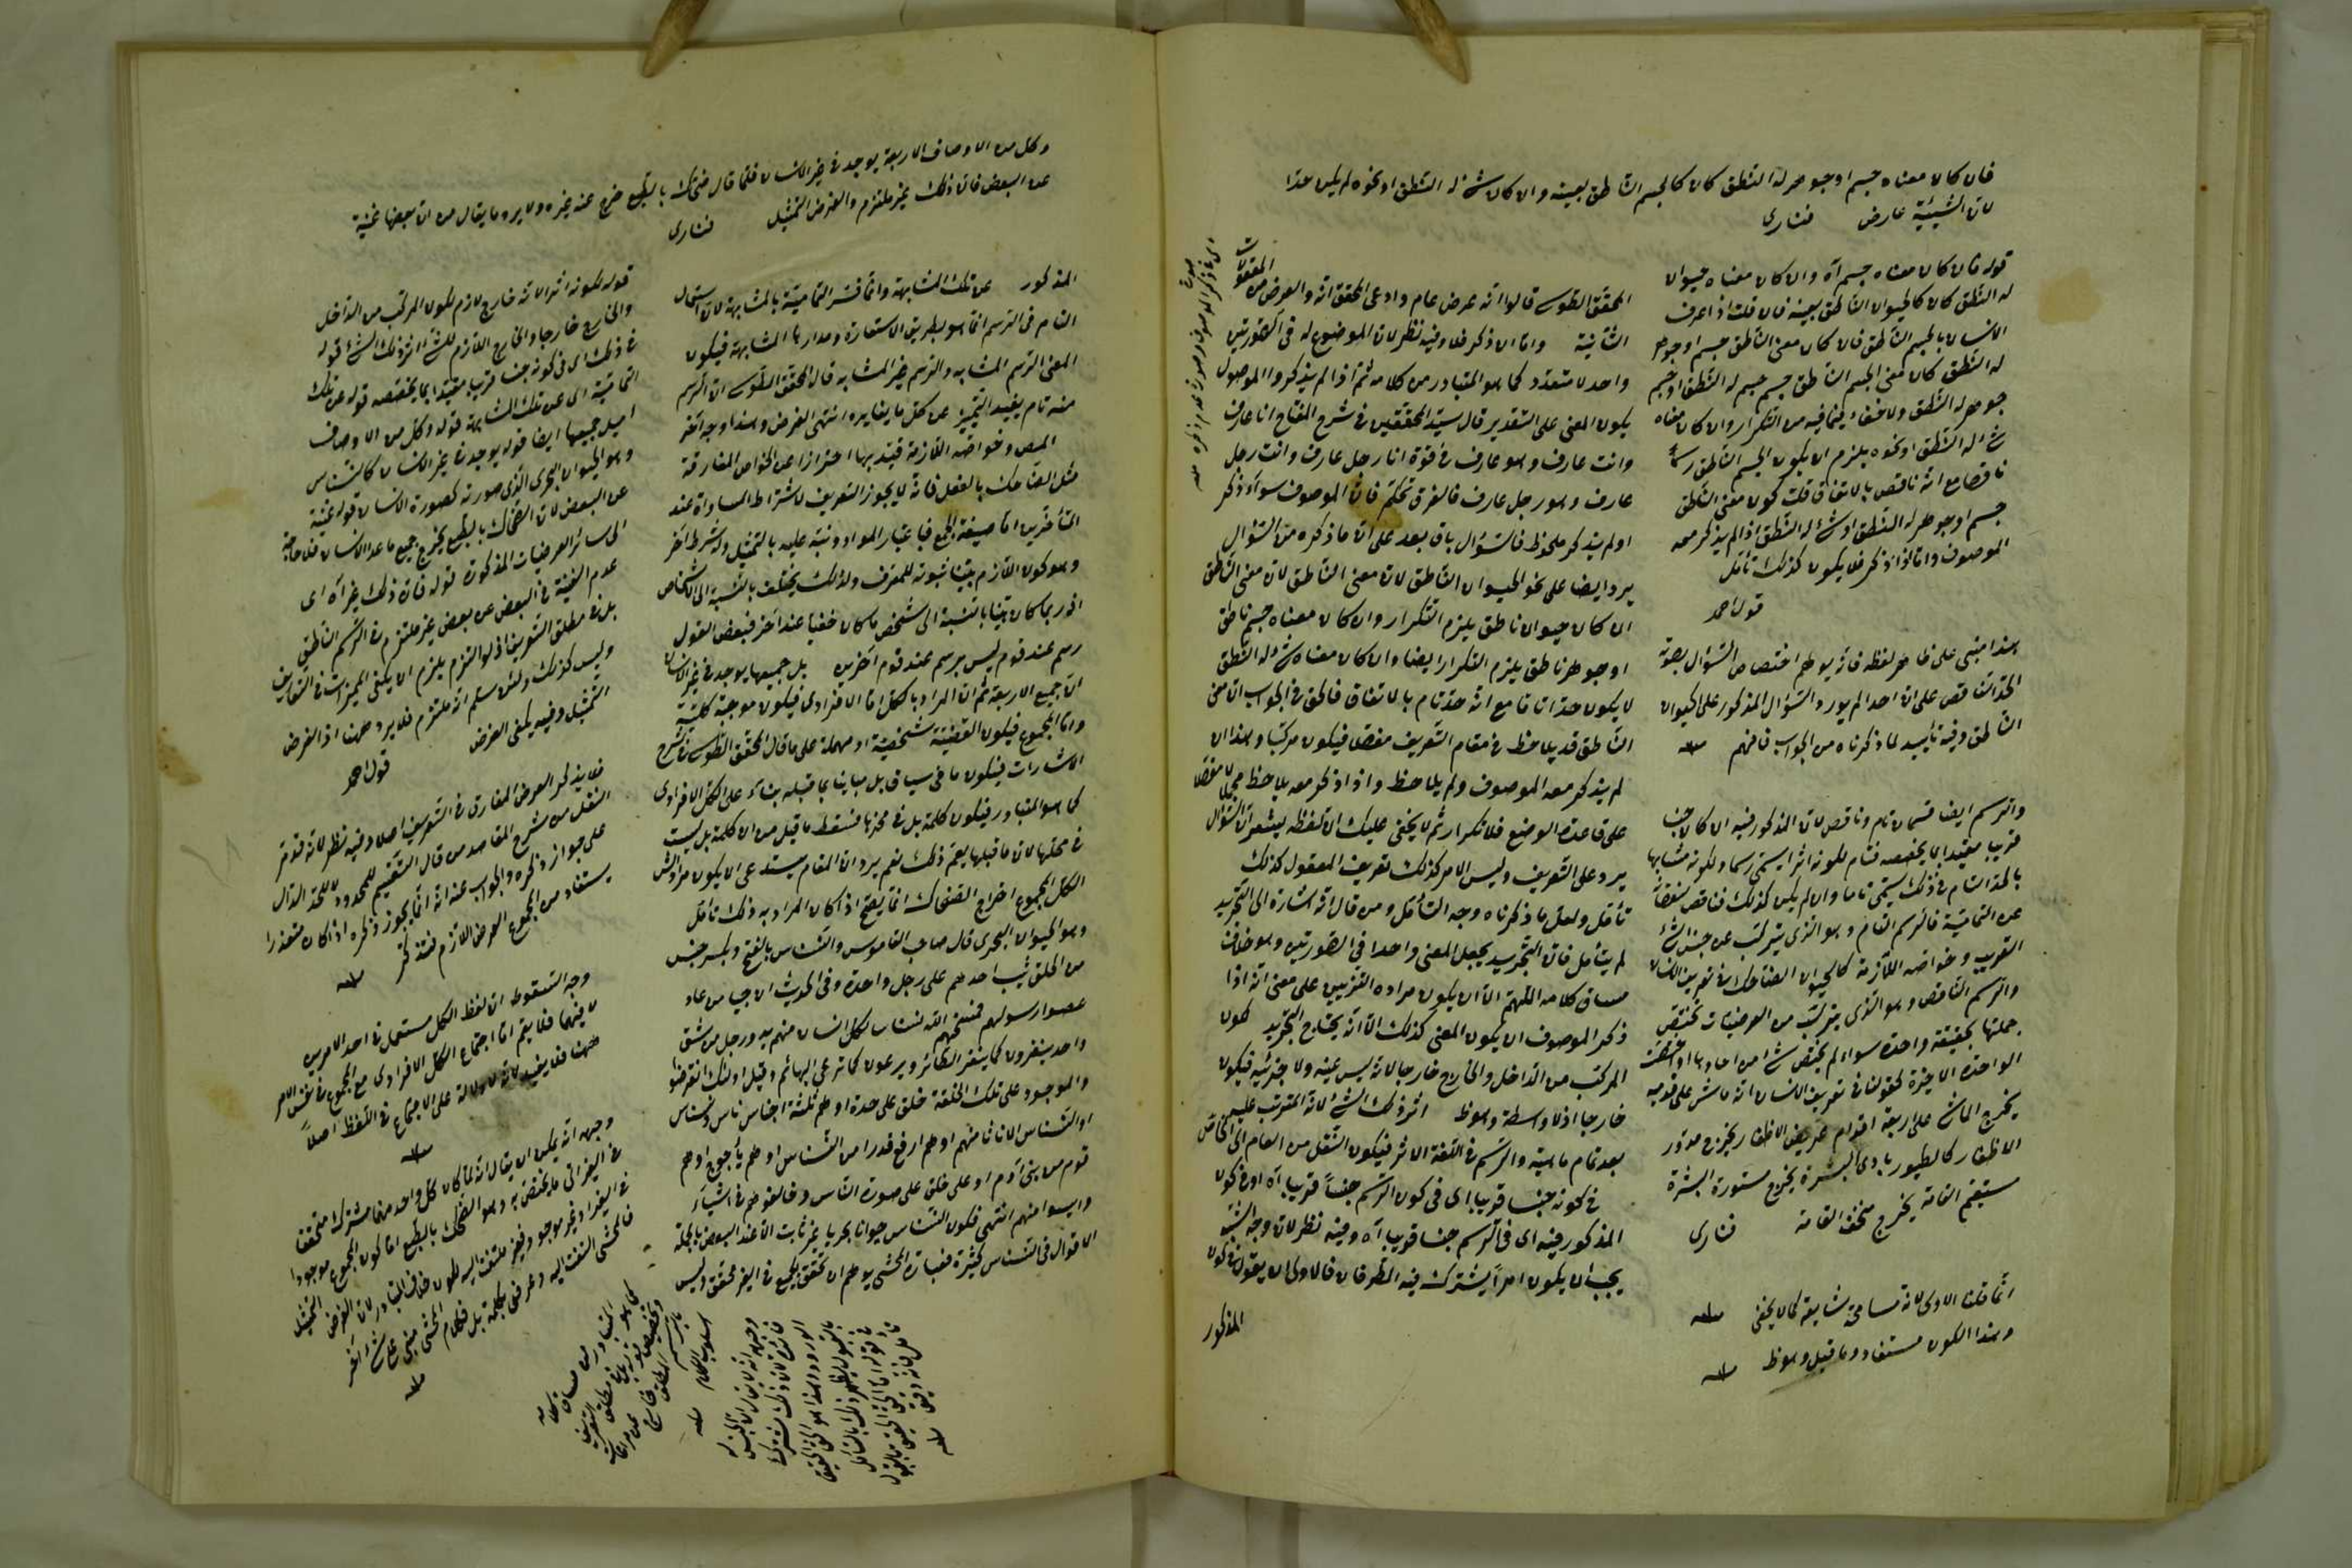 فان كان معناه جسم او جوهر له النطق كان كالجسم الناطق بعينه والا كان شئ له النطق او نحوه لم يكن حدا
لان الشيئية عارض فنارى
قوله فان كان معناه جسم آه والا كان معناه حيوان
له النطق كان كالحيوان الناطق بعينه فان قلت اذا عرف
الانسان بالجسم الناطق فان كان معنى الناطق جسم او جوهر
له النطق كان معنى الجسم الناطق جسم جسم له النطق او جسم
جوهر له النطق ولا خفاء فيما فيه من التكرار وان كان معناه
شئ له النطق او نحوه يلزم ان يكون الجسم الناطق رسما
ناقصا مع انه ناقص بالاتفاق قلت كون معنى الناطق
جسم او جوهر له النطق او شئ له النطق اذا لم يذكر معه
الموصوف واما اذا ذكر فلا يكون كذلك تأمل
قول احمد
هذا مبنى على ظاهر لفظه فانه يوهم اختصاص السؤال بصورة
الحد الناقص على ان احدا لم يورد السؤال المذكور على الحيوان
الناطق وفيه تأييد لما ذكرناه من الجواب فافهم منه
والرسم ايضا قسمان تام وناقص لان المذكور فيه ان كان جنسا
قريبا مقيدا بما يخصصه فتام لكونه اثرا يسمى رسما ولكونه مشابها
بالحد التام فى ذلك يسمى تاما وان لم يكن كذلك فناقص لنقصانه
عن التمامية فالرسم التام وهو الذى يتركب عن جنس الشئ
القريب وخواصه اللازمة كالحيوان الضاحك فى تعريف الانسان
والرسم الناقص وهو الذى يتركب من العرضيات تختص
جملتها بحقيقة واحدة سواء لم يختص شئ من احادها او اختصت
الواحدة الاخيرة كقولنا فى تعريف الانسان انه ماش على قدميه
يخرج الماشى على اربعة اقدام عريض الاظفار يخرج مدور
الاظفار كالطيور بادى البشرة يخرج مستورة البشرة
مستقيم القامة يخرج منحنى القامة فنارى
انما قلنا الاولى لانه مسامحة شايعة كما لا يخفى منه
وهذا الكون مستفاد وما قيل وهو ظ منه
المحقق الطوسى قالوا انه عرض عام وادعى المحقق انه والعرض من المعقولات
الثانية واما ان ذكر فلا وفيه نظر لان الموضوع له فى الصورتين
واحد لا متعدد كما هو المتبادر من كلامه ثم اذا لم يذكروا الموصول
يكون المعنى على التقدير قال سيد المحققين فى شرح المفتاح انا عارف
وانت عارف وهو عارف فى قوة انا رجل عارف وانت رجل
عارف وهو رجل عارف فالفرق تحكم فان الموصوف سواء ذكر
او لم يذكر ملحوظ فالسؤال باق بعد على ان ما ذكره من السؤال
يرد ايضا على نحو الحيوان الناطق لان معنى الناطق لان معنى الناطق
ان كان حيوان ناطق يلزم التكرار وان كان معناه جسم ناطق
او جوهر ناطق يلزم التكرار ايضا وان كان معناه شئ له النطق
لا يكون حدا تاما مع انه حد تام بالاتفاق فالحق فى الجواب ان معنى
الناطق قد يلاحظ فى مقام التعريف مفصلا فيكون مركبا وهذا ان
لم يذكر معه الموصوف ولم يلاحظ واذا ذكر معه يلاحظ مجملا لا مفصلا
على قاعدة الوضع فلا تكرار ثم لا يخفى عليك ان لفظه يشعر ان السؤال
يرد على التعريف وليس الامر كذلك تعريف المعقول كذلك
تأمل ولعل ما ذكرناه وجه التأمل ومن قال انه اشارة الى التجريد
لم يتأمل فان التجريد يجعل المعنى واحدا فى الصورتين وهو خلاف
مساق كلامه اللهم الا ان يكون مراده التزييف على معنى انه اذا
ذكر الموصوف ان يكون المعنى كذلك الا انه يحتاج التجريد لكون
المركب من الداخل والخارج خارجا لانه ليس عينه ولا جزئيه فيكون
خارجا اذ لا واسطة وهو ظ اثر ذلك الشئ لانه المترتب عليه
بعد تمام ماهيته والرسم فى اللغة الاثر فيكون النقل من العام الى الخاص
فى كونه جنسا قريبا اى فى كون الرسم جنسا قريبا آه او فى كون
المذكور فيه اى فى الرسم جنسا قريبا آه وفيه نظر لان وجه الشبه
يجب ان يكون امرا يشترك فيه الطرفان فالاولى ان يقول فى كون
المذكور
وكل من الاوصاف الاربعة يوجد فى غير الانسان فلما قال ضحاك بالطبع خرج عنه غيره ولا يرد ما يقال من ان بعضها غنية
عن البعض فان ذلك غير ملتزم والغرض التمثيل فنارى
المذكور عن تلك المشابهة وانما فسر التمامية بالمشابهة لان استعمال
التام فى الرسم انما هو بطريق الاستعارة ومدارها المشابهة فيكون
المعنى الرسم المشابه والرسم غير المشابه قال المحقق الطوسى ان الرسم
منه تام يفيد التمييز عن كل ما يغايره انتهى الغرض وهذا وجه اخر
المص وخواصه اللازمة قيد بها احترازا عن الخواص المفارقة
مثل الضاحك بالفعل فانه لا يجوز التعريف لاشتراط المساواة عند
المتأخرين اما صيغة الجمع فباعتبار المواد ونبه عليه بالتمثيل وله شرط آخر
وهو كون اللازم بينا ثبوته للمعرف ولذلك يختلف بالنسبة الى الاشخاص
اذ ربما كان بينا بالنسبة الى شخص ما كان خفيا عند آخر فبعض القول
رسم عند قوم ليس برسم عند قوم آخرين بل جميعها يوجد فى غير الانسان
ان جميع الاربعة ثم ان المراد بالكل اما الافرادى فيكون موجبة كلية
واما المجموع فيكون القضية شخصية او مهملة على ما قال المحقق الطوسى فى شرح
الاشارات فيكون ما فى سياق بل مباينا بما قبله بناء على الكل الافرادى
كما هو المتبادر فيكون كلمة بل فى محزها فسقط ما قيل من ان كلمة بل ليست
فى محلها لان ما قبلها يعم ذلك نعم يرد ان المقام يستدعى ان يكون مراد الش
الكل المجموع اخراج الضحاك انما يصح اذا كان المراد به ذلك تأمل
وهو الحيوان البحرى قال صاحب القاموس والنسناس بالفتح ويكسر جنس
من الخلق يثب احدهم على رجل واحدة وفى الحديث ان حيا من عاد
عصوا رسولهم فمسخهم الله نسناسا لكل انسان منهم يد ورجل من شق
واحد ينقرون كما ينقر الطائر ويرعون كما ترعى البهائم وقيل اولئك انقرضوا
والموجود على تلك الخلقة خلق على حدة او هم ثلثة اجناس ناس ونسناس
او النسناس الاناث منهم او هم ارفع قدرا من النسناس او هم يأجوج او هم
قوم من بنى آدم او على خلق على صورة الناس وخالفوهم فى اشياء
وليسوا منهم انتهى فكون النسناس حيوانا بحريا غير ثابت الا عند البعض بالجملة
الاقوال فى النسناس كثيرة فعبارة المحشى يوهم ان تحقق الجميع فى الغير محقق وليس
قوله لكونه اثرا لانه خارج لازم لكون المركب من الداخل
والخارج خارجا والخارج اللازم للشئ اثر ذلك الشئ قوله
فى ذلك اى فى كونه جنسا قريبا مقيدا بما يخصصه قوله عن تلك
التمامية اى عن تلك المشابهة قوله وكل من الاوصاف
اى بل جميعها ايضا قوله يوجد فى غير الانسان كالنسناس
وهو الحيوان البحرى الذى صورته كصورة الانسان قوله غنية
عن البعض لان الضحاك بالطبع يخرج جميع ما عدا الانسان فلا حاجة
الى سائر العرضيات المذكورة قوله فان ذلك غير آه اى
عدم الغنية فى البعض عن بعض غير ملتزم فى الرسم الناقص
بل فى مطلق التعريف اذ لو التزم يلزم ان يكفى المميزات فى التعاريف
وليس كذلك ولئن سلم انه ملتزم فلا يرد ههنا اذ الغرض
التمثيل وفيه يكفى الفرض
قول احمد
فلا يذكر العرض المفارق فى التعريف اصلا وفيه نظر لانه قد مر
النقل من شرح المقاصد من قال التقسيم للمحدود لا للحد الدال
على جواز ذكره والجواب عنه انه انما يجوز ذكره اذا كان متعذرا
يستفاد من المجموع العرض اللازم فتذكر منه
وجه السقوط ان لفظ الكل مستعمل فى احد الامرين
لا فيهما فلا يتم اما اجتماع الكل الافرادى مع المجموع فى نفس الامر
ههنا فلا يفيد لانه لا دلالة على الاجتماع فى اللفظ اصلا
منه
وجهه انه يمكن ان يقال انه لما كان كل واحد منها مشتركا متحققا